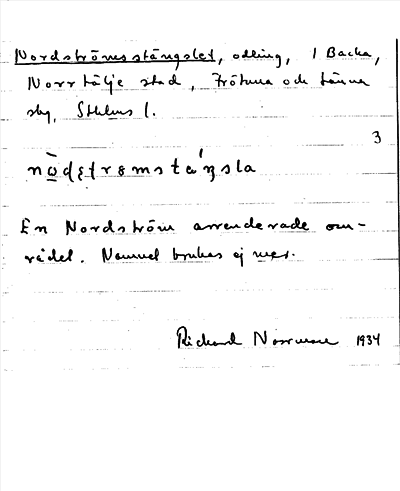 Nordströmsstängslet, odling, i Backa,
Norrtälje stad, Frötuna och Länna
sbg, Sthlms l.
3
En Nordström arrenderade om-
rådet. Namnet brukas ej mer.
Rickard Norrman 1934